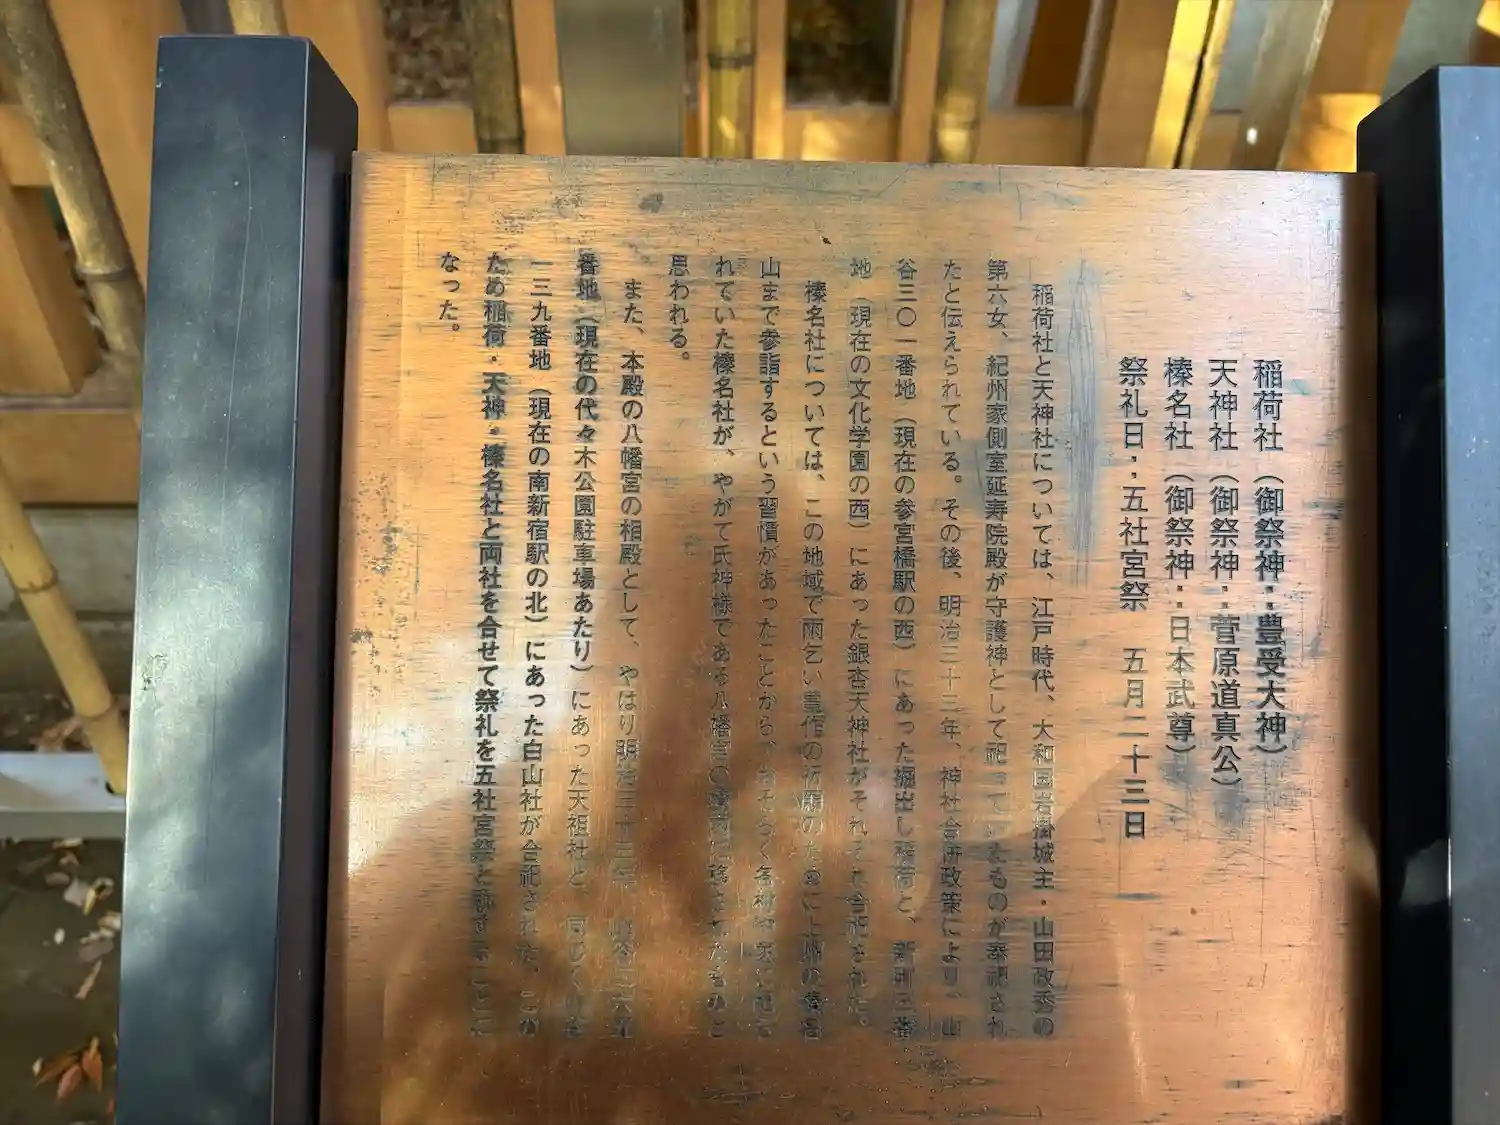 稲荷社（御祭神：豊受大神）
天神社（御祭神：菅原道真公）
榛名社（御祭神：日本武尊）
祭礼日：五社宮祭　五月二十三日
稲荷社と天神社については、江戸時代、大和国岩掛城主・山田政秀の
第六女、紀州家側室延寿院殿が守護神として祀っていたものが奉祀され
たと伝えられている。その後、明治三十三年、神社合併政策により、山
谷三〇一番地（現在の参宮橋駅の西）にあった堀出し稲荷と、新町三番
地（現在の文化学園の西）にあった銀杏天神社がそれぞれ合祀された。
榛名社については、この地域で雨乞い豊作の祈願のために上州の榛名
山まで参詣するという習慣があったことから、おそらく各村に
れていた榛名社が、やがて氏神様である八幡宮の境内に移されたものと
思われる。
また、本殿の八幡宮の相殿として、やはり明治三十三年、
番地（現在の代々木公園駐車場あたり）にあった天祖社と、同じく
一三九番地（現在の南新宿駅の北）にあった白山社が合祀された。この
ため稲荷・天神・榛名社と両社を合せて祭礼を五社宮祭と称することに
なった。